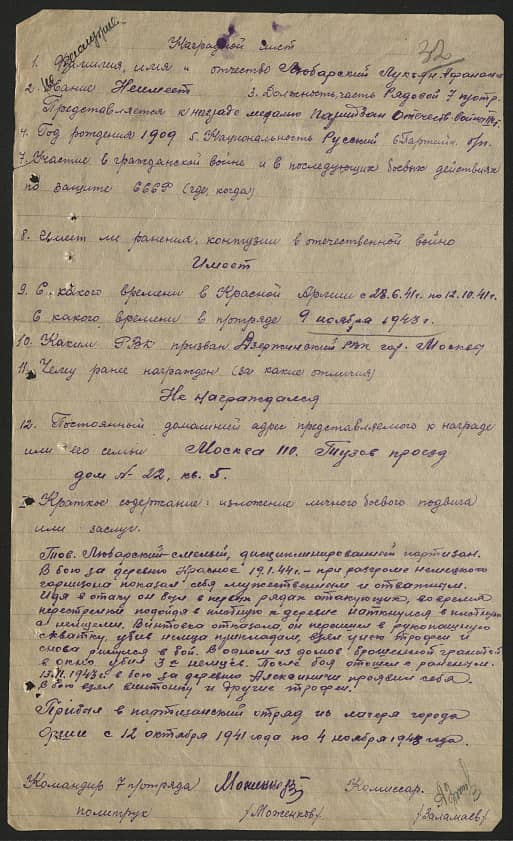 32
Наградной лист
1. Фамилия, имя и отчество Любарский Лукьян Афанась
2. Звание Неимеет 3. Должность, часть Рядовой 7 п/отр.
Представляется к награде медалью Партизан Отечеств. войны
4. Год рождения 1909 5. Национальность Русский 6 Партийн. б/п.
7. Участие в гражданской войне и в последующих боевых действиях
по защите СССР (где, когда)
8. Имеет ли ранения, контузии в отечественной войне
Имеет
9. С какого времени в Красной Армии с 28.6.41г. по 12.10.41г.
С какого времени в п/отряде 9 ноября 1943г.
10. Каким РВК призван Дзержинский РВК гор. Москва
11. Чему ранее награжден (за какие отличия)
Не награждался
12. Постоянный домашний адрес представляемого к награде
или его семьи Москва 110. проезд
дом № 22, кв. 5.
Краткое содержание: изложение личного боевого подвига
или заслуг.
Тов. Любарский-смелый, дисциплинированный партизан.
В бою за деревню Красное 19.1.44г. - при разгроме немецкого
гарнизона показал себя мужественным и отважным.
Идя в атаку он был в первых рядах атакующих, во время
перестрелки подойдя в плотную к деревне наткнулся
с немцами. Винтовка отказала, он перешел в рукопашную
схватку, убив немца прикладом, взял у него трофеи и
снова ринулся в бой. В одном из домов брошенной гранатой
в окно убил 3х немцев. После боя отошел с раненым.
в бою за деревню проявил себя.
В бою взял винтовку и другие трофеи.
Прибыл в партизанский отряд из лагеря города
с 12 октября 1941 года по 4 ноября 1943 года.
Командир 7 п/отряда Комиссар.
политрук /Моженков/ /Заламаев/